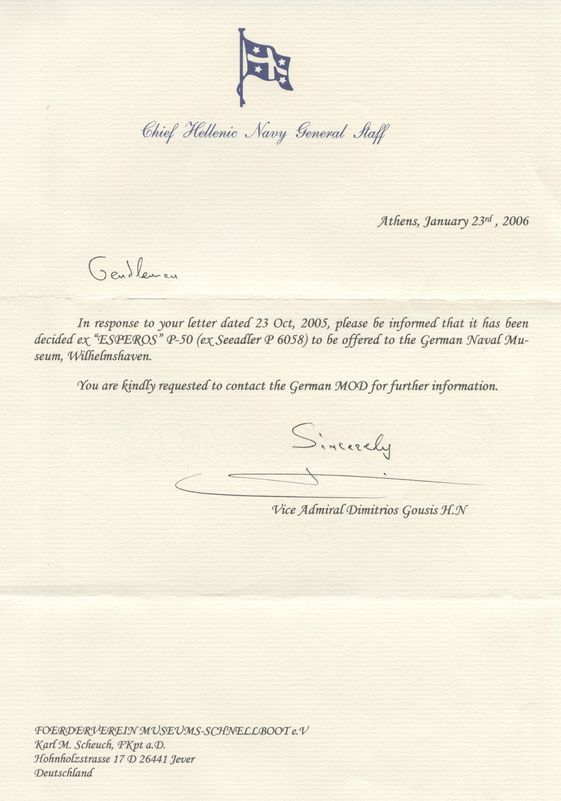 Chief Hellenic Navy General Staff
Athens, January 23rd , 2006
Gentlemen
In response to your letter dated 23 Oct, 2005, please be informed that it has been
decided ex "ESPEROS" P-50 (ex Seeadler P 6058) to be offered to the German Naval Mu-
seum, Wilhelmshaven.
You are kindly requested to contact the German MOD for further information.
Sincerely
Vice Admiral Dimitrios Gousis H.N
FOERDERVEREIN MUSEUMS-SCHNELLBOOT e.V
Karl M. Scheuch, FKpt a.D.
Hohnholzstrasse 17 D 26441 Jever
Deutschland